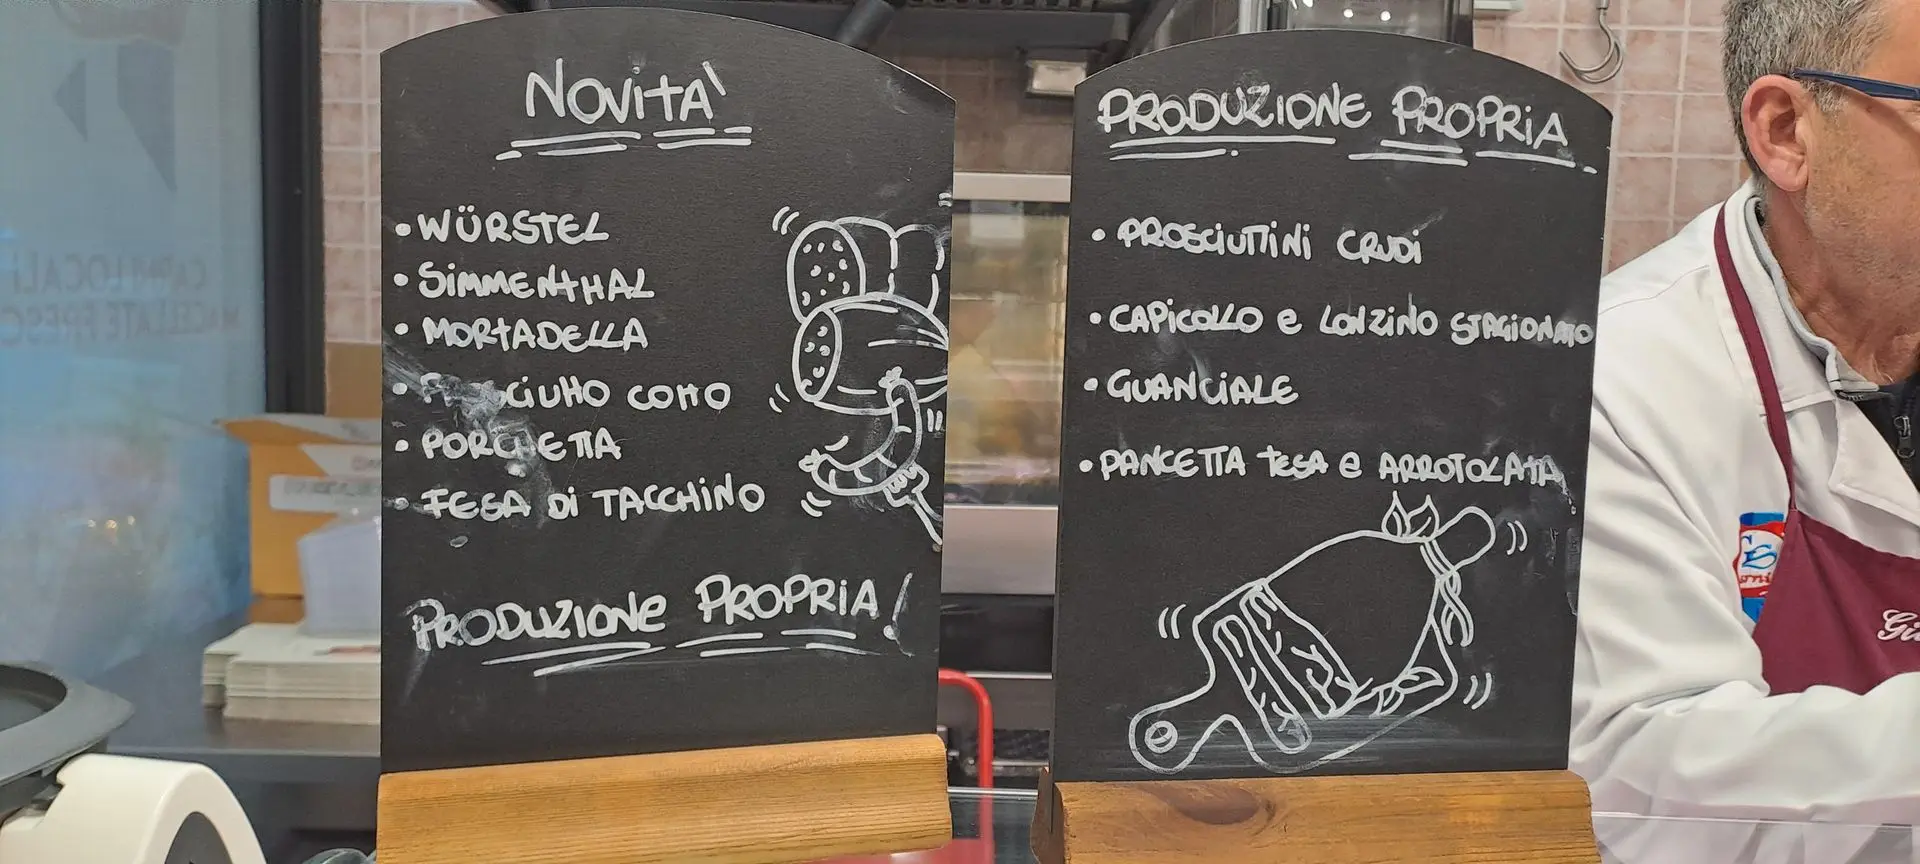 NOVITA'
• WÜRSTEL
• SIMMENTHAL
• MORTADELLA
• PROSCIUTTO COTTO
• PORCHETTA
• FESA DI TACCHINO
PRODUZIONE PROPRIA!
PRODUZIONE PROPRIA
• PROSCIUTTINI CRUDI
• CAPICOLLO e LONZINO STAGIONATO
• GUANCIALE
• PANCETTA TESA e ARROTOLATA